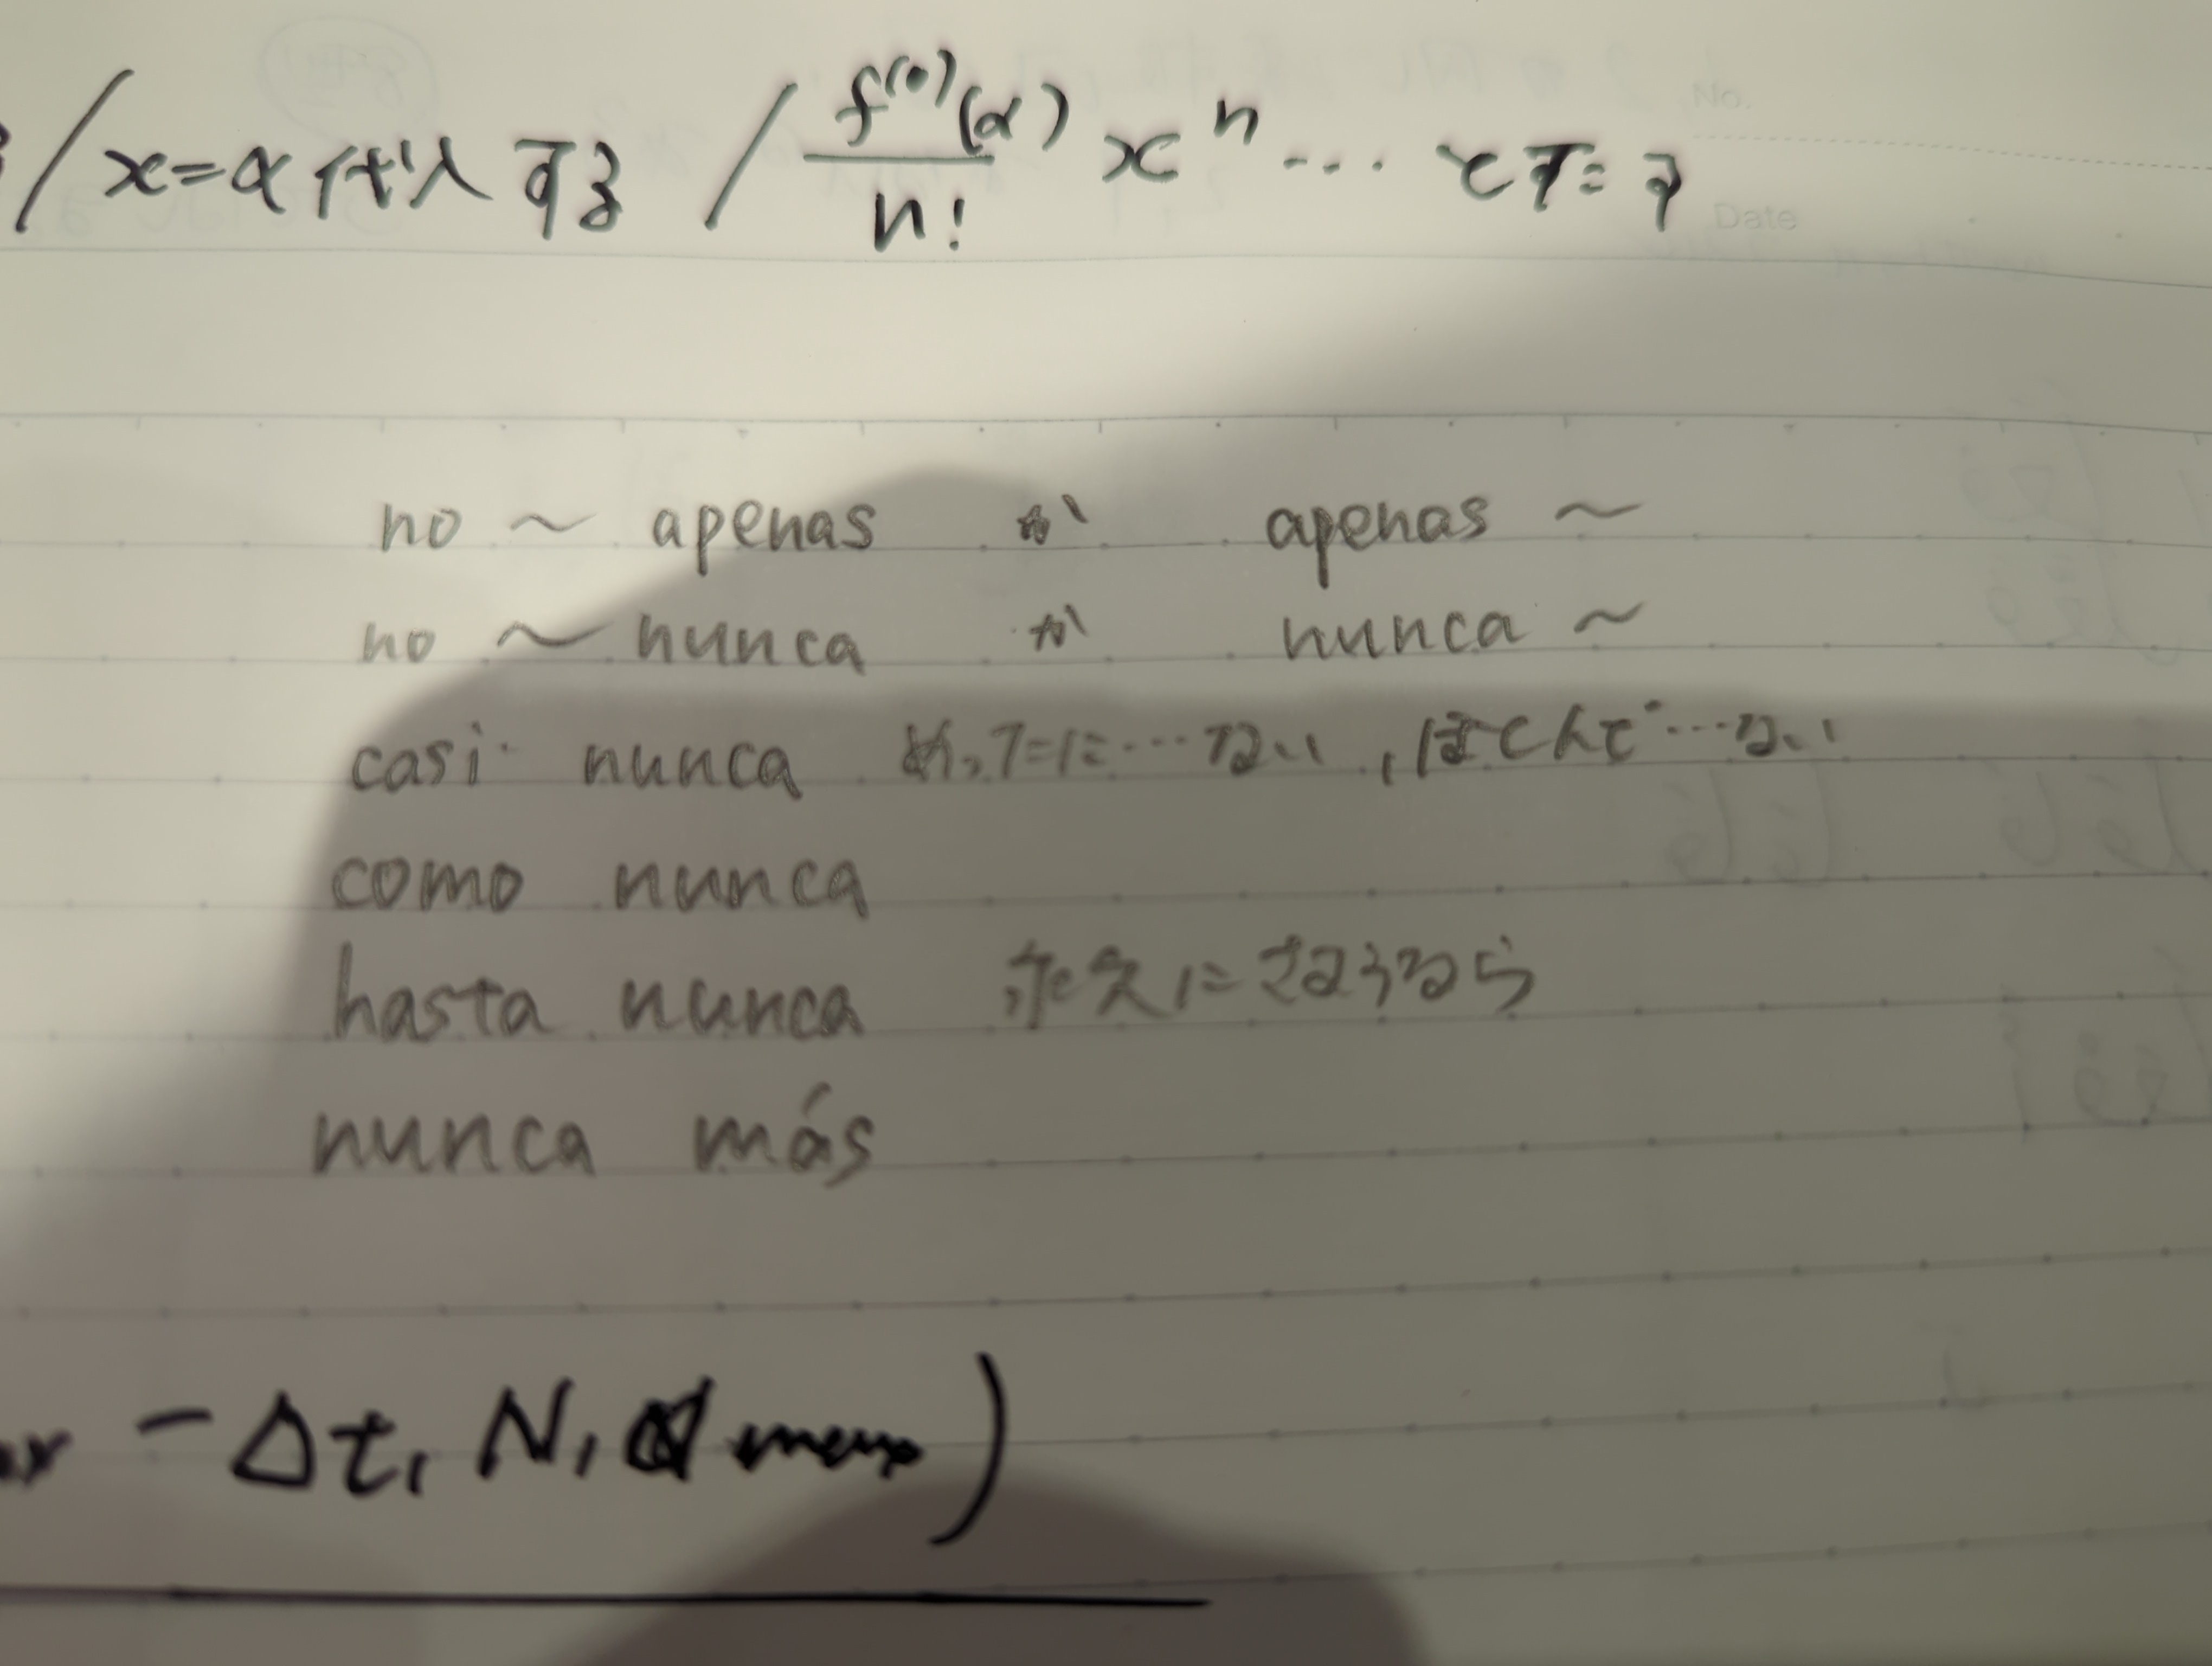 / x=α代入する / f⁽⁰⁾(α)/n! xⁿ ... とすた?
No.
Date
no ~ apenas か apenas ~
no ~ nunca か nunca ~
casi nunca めったに…ない, ほとんど…ない
como nunca
hasta nunca 永久にさようなら
nunca más
-Δt, N,